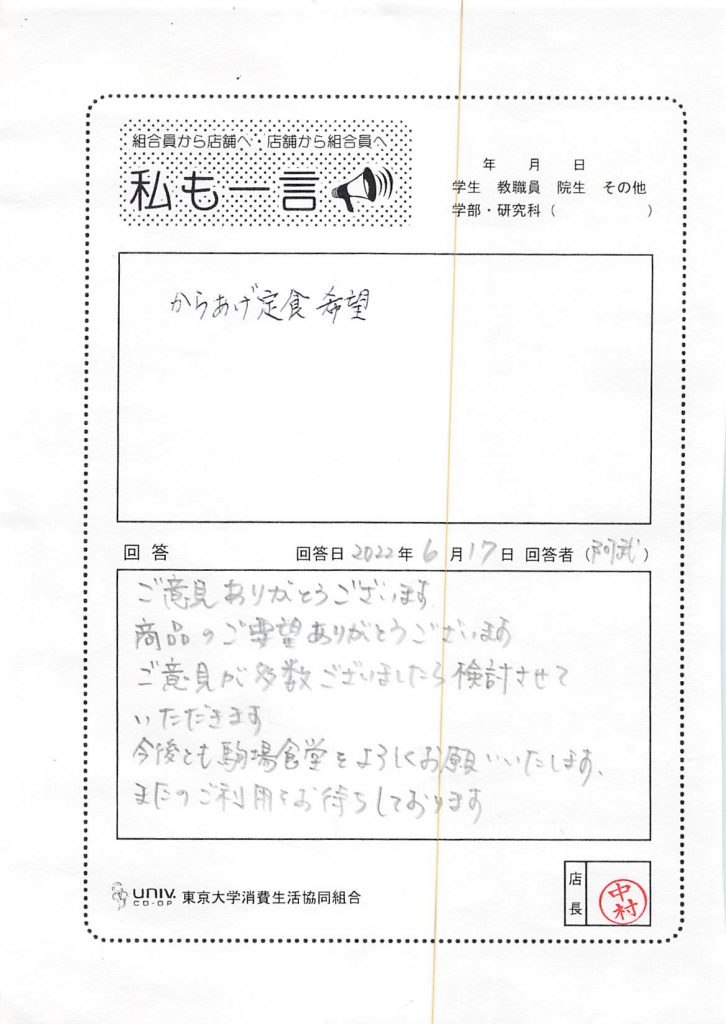 組合員から店舗へ・店舗から組合員へ
私も一言
年 月 日
学生 教職員 院生 その他
学部・研究科 ( )
からあげ定食 希望
回答 回答日 2022 年 6 月 17 日 回答者 (阿武)
ご意見ありがとうございます
商品のご要望ありがとうございます
ご意見が多数ございましたら検討させて
いただきます
今後とも駒場食堂をよろしくお願いいたします、
またのご利用をお待ちしております
UNIV. CO-OP 東京大学消費生活協同組合
店長 中村